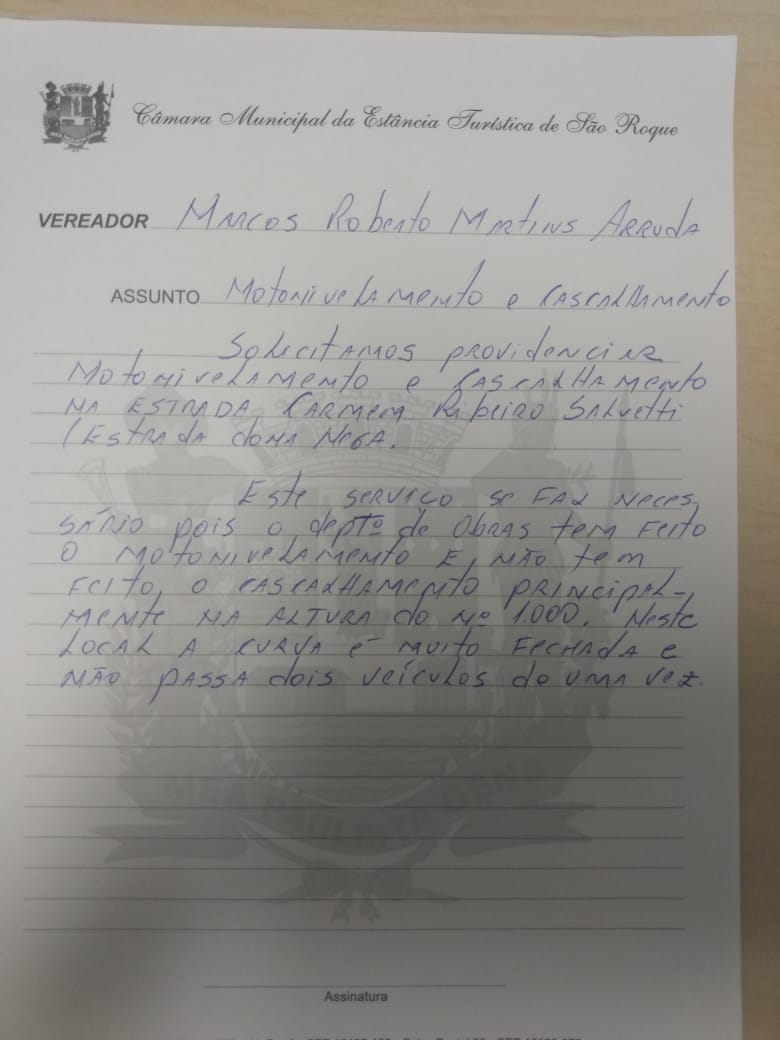 Câmara Municipal da Estância Turística de São Roque
VEREADOR Marcos Roberto Martins Arruda
ASSUNTO Motonivelamento e Cascalhamento
Solicitamos providenciar
Motonivelamento e Cascalhamento
na Estrada Carmem Ribeiro Salvetti
(Estrada dona Nega.
Este serviço se faz neces
sário pois o deptº de Obras tem feito
o motonivelamento e não tem
feito, o cascalhamento principal-
mente na altura do nº 1.000. Neste
local a curva é muito fechada e
não passa dois veículos de uma vez.
MEA PAULISTA GENS
Assinatura